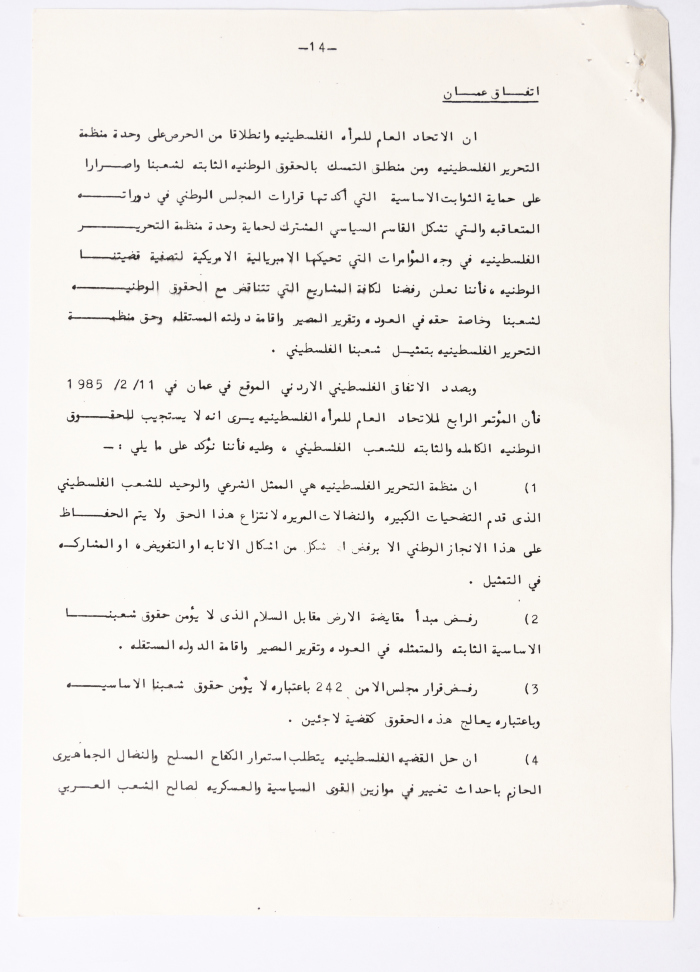 -14-
اتفاق عمان
ان الاتحاد العام للمرأه الفلسطينيه وانطلاقا من الحرص على وحدة منظمة
التحرير الفلسطينيه ومن منطلق التمسك بالحقوق الوطنيه الثابته لشعبنا واصرارا
على حماية الثوابت الاساسية التي أكدتها قرارات المجلس الوطني في دوراته
المتعاقبه والتي تشكل القاسم السياسي المشترك لحماية وحدة منظمة التحرير
الفلسطينيه في وجه المؤامرات التي تحيكها الامبريالية الامريكية لتصفية قضيتنا
الوطنيه ، فأننا نعلن رفضنا لكافة المشاريع التي تتناقض مع الحقوق الوطنيه
لشعبنا وخاصة حقه في العوده وتقرير المصير واقامة دولته المستقله وحق منظمة
التحرير الفلسطينيه بتمثيل شعبنا الفلسطيني .
وبصدد الاتفاق الفلسطيني الاردني الموقع في عمان في 11/2/ 1985
فأن المؤتمر الرابع للاتحاد العام للمرأه الفلسطينيه يرى انه لا يستجيب للحقوق
الوطنيه الكامله والثابته للشعب الفلسطيني ، وعليه فأننا نؤكد على ما يلي : -
1) ان منظمة التحرير الفلسطينيه هي الممثل الشرعي والوحيد للشعب الفلسطيني
الذى قدم التضحيات الكبيره والنضالات المريره لانتزاع هذا الحق ولا يتم الحفاظ
على هذا الانجاز الوطني الا برفض شكل من اشكال الانابه او التفويض، او المشاركه
في التمثيل .
2) رفض مبدأ مقايضة الارض مقابل السلام الذى لا يؤمن حقوق شعبنا
الاساسية الثابته والمتمثله في العوده وتقرير المصير واقامة الدوله المستقله .
3) رفض قرار مجلس الامن 242 باعتباره لا يؤمن حقوق شعبنا الاساسيه
وباعتباره يعالج هذه الحقوق كقضية لاجئين .
4) ان حل القضيه الفلسطينيه يتطلب استمرار الكفاح المسلح والنضال الجماهيرى
الحازم باحداث تغيير في موازين القوى السياسية والعسكريه لصالح الشعب العربي